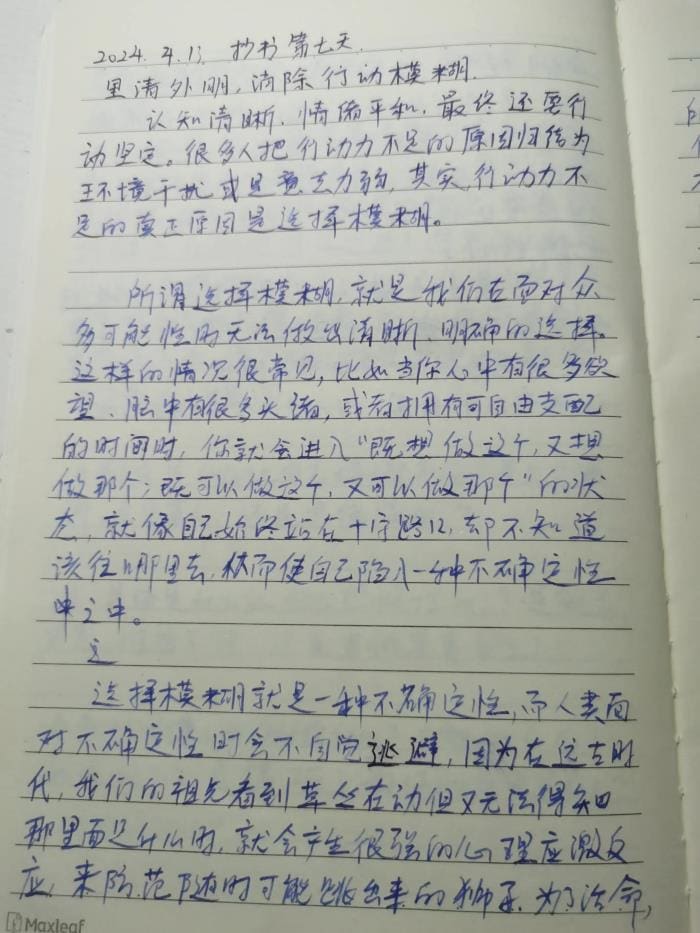 2024.4.13. 抄书第七天.
里清外明，消除行动模糊.
认知清晰、情绪平和，最终还要行
动坚定。很多人把行动力不足的原因归结为
环境干扰或是意志力弱，其实，行动力不
足的真正原因是选择模糊。
所谓选择模糊，就是我们在面对众
多可能性时无法做出清晰、明确的选择。
这样的情况很常见，比如当你心中有很多欲
望、脑中有很多头绪，或者拥有可自由支配
的时间时，你就会进入“既想做这个，又想
做那个；既可以做这个，又可以做那个”的状
态，就像自己始终站在十字路口，却不知道
该往哪里去，从而使自己陷入一种不确定性
之中。
选择模糊就是一种不确定性，而人类面
对不确定性时会不自觉逃避，因为在远古时
代，我们的祖先看到草丛在动但又无法得知
那里面是什么时，就会产生很强的心理应激反
应，来防范随时可能跳出来的狮子.为了活命，
Maxleaf